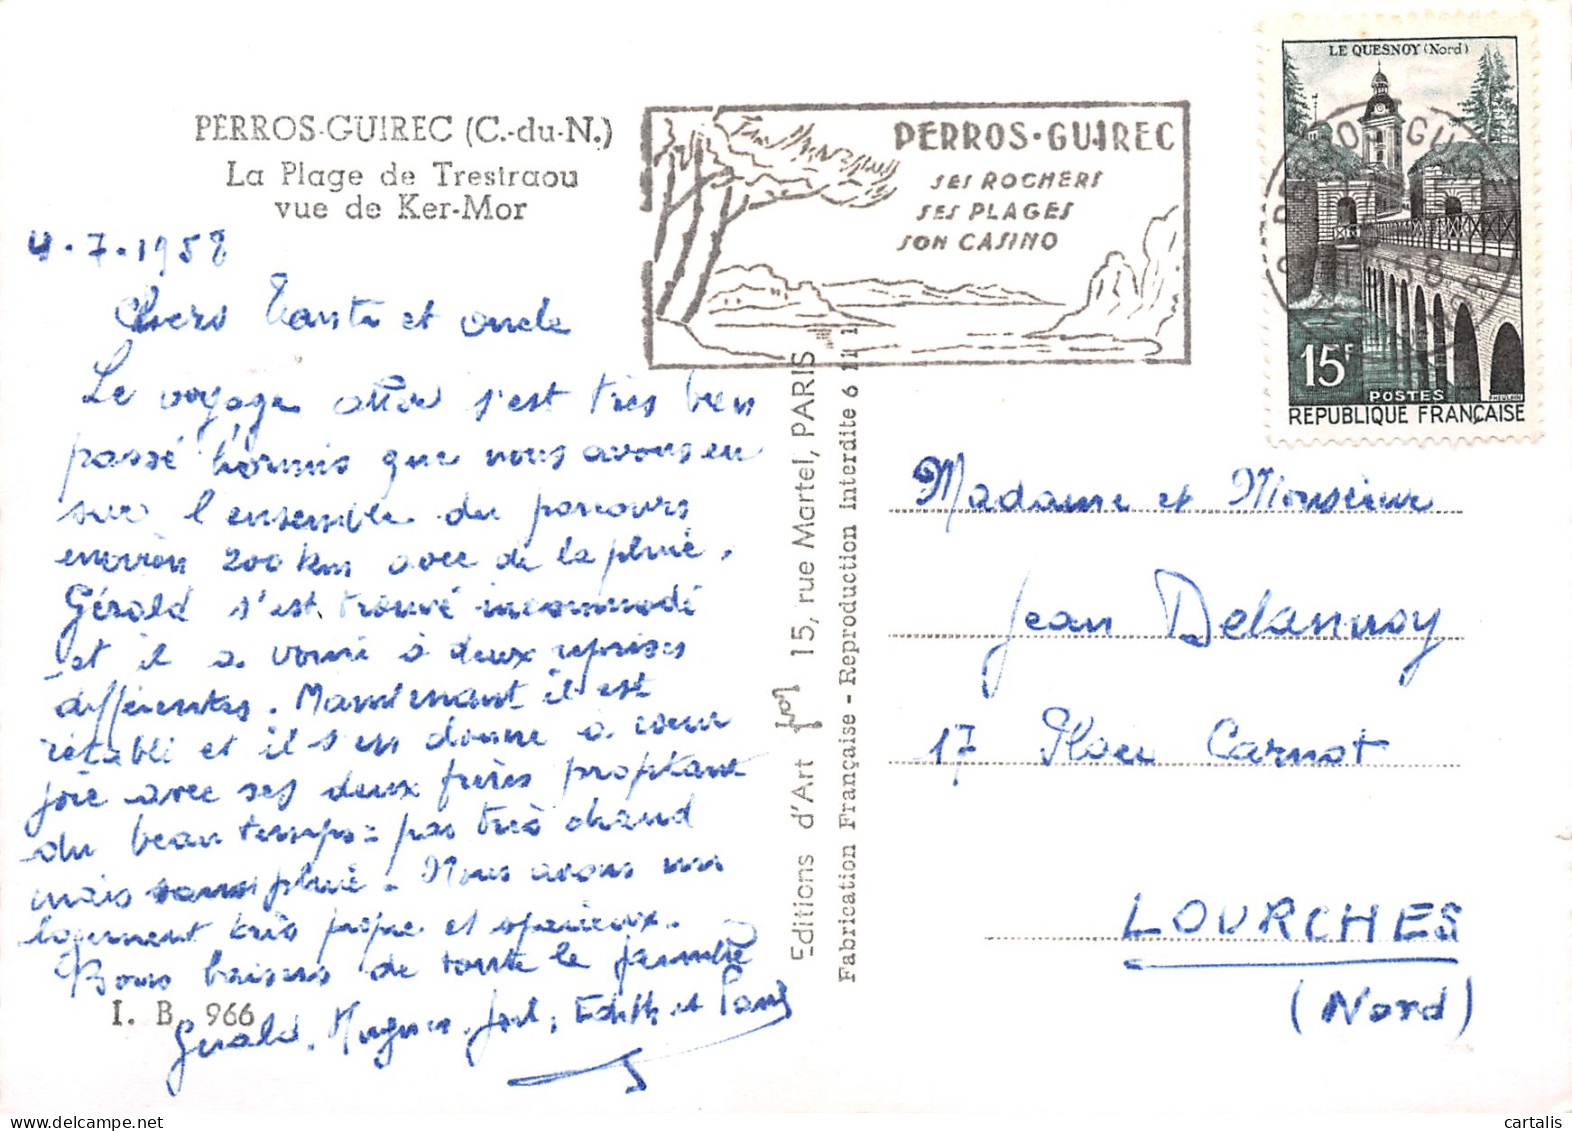 PERROS-GUIREC (C.-du-N.)
La Plage de Trestraou
vue de Ker-Mor
4.7.1958
Chers Tante et oncle
Le voyage aller s'est très bien
passé hormis que nous avons eu
sur l'ensemble du parcours
environ 200 km avec de la pluie.
Gérald s'est trouvé incommodé
et il a vomi à deux reprises
différentes. Maintenant il est
rétabli et il s'en donne à cœur
joie avec ses deux frères profitant
du beau temps = pas très chaud
mais sans pluie. Nous avons un
logement très propre et spacieux.
Bons baisers de toute la famille
Gérald, Hugues, Joël, Edith et Paul
I. B. 966
Editions d'Art 15, rue Martel, PARIS
Fabrication Française - Reproduction Interdite 6 111
PERROS-GUIREC
SES ROCHERS
SES PLAGES
SON CASINO
LE QUESNOY (Nord)
15F
POSTES
REPUBLIQUE FRANÇAISE
Madame et Monsieur
Jean Delannoy
17 Place Carnot
LOURCHES
(Nord)
cartalis